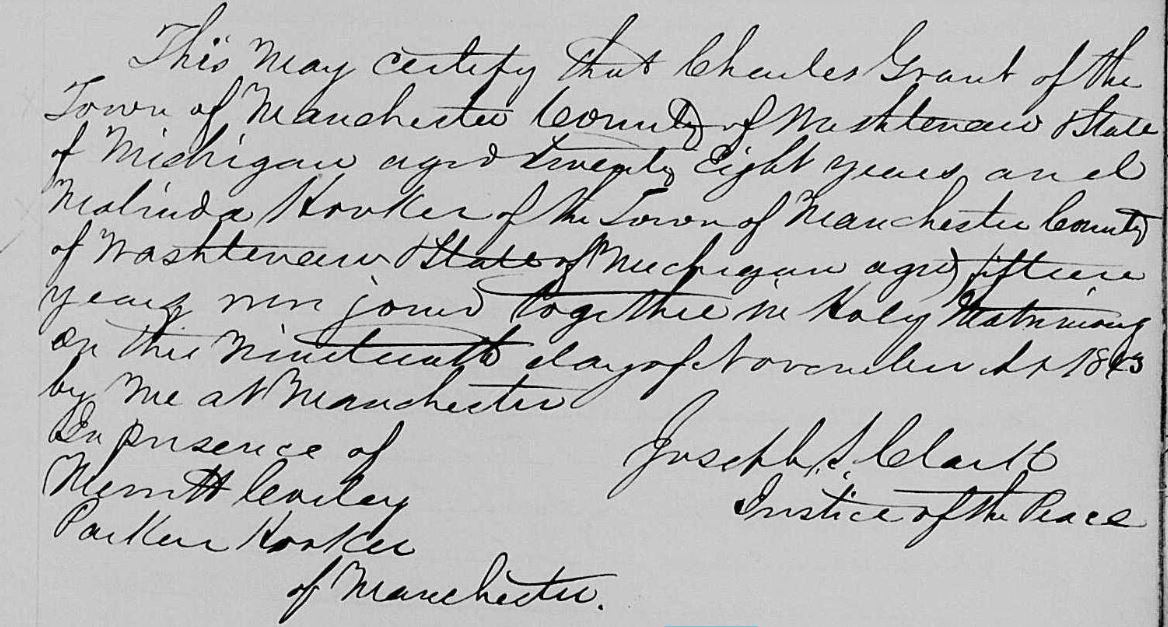 This May certify that Charles Grant of the
Town of Manchester County of Washtenaw & State
of Michigan aged twenty Eight years and
Malinda Hooker of the Town of Manchester County
of Washtenaw & State of Michigan aged fifteen
years were joined together in Holy Matrimony
on this Nineteenth day of November AD 1843
by me at Manchester
In presence of
Joseph S. Clark
Merritt
Justice of the Peace
Parker Hooker
of Manchester.